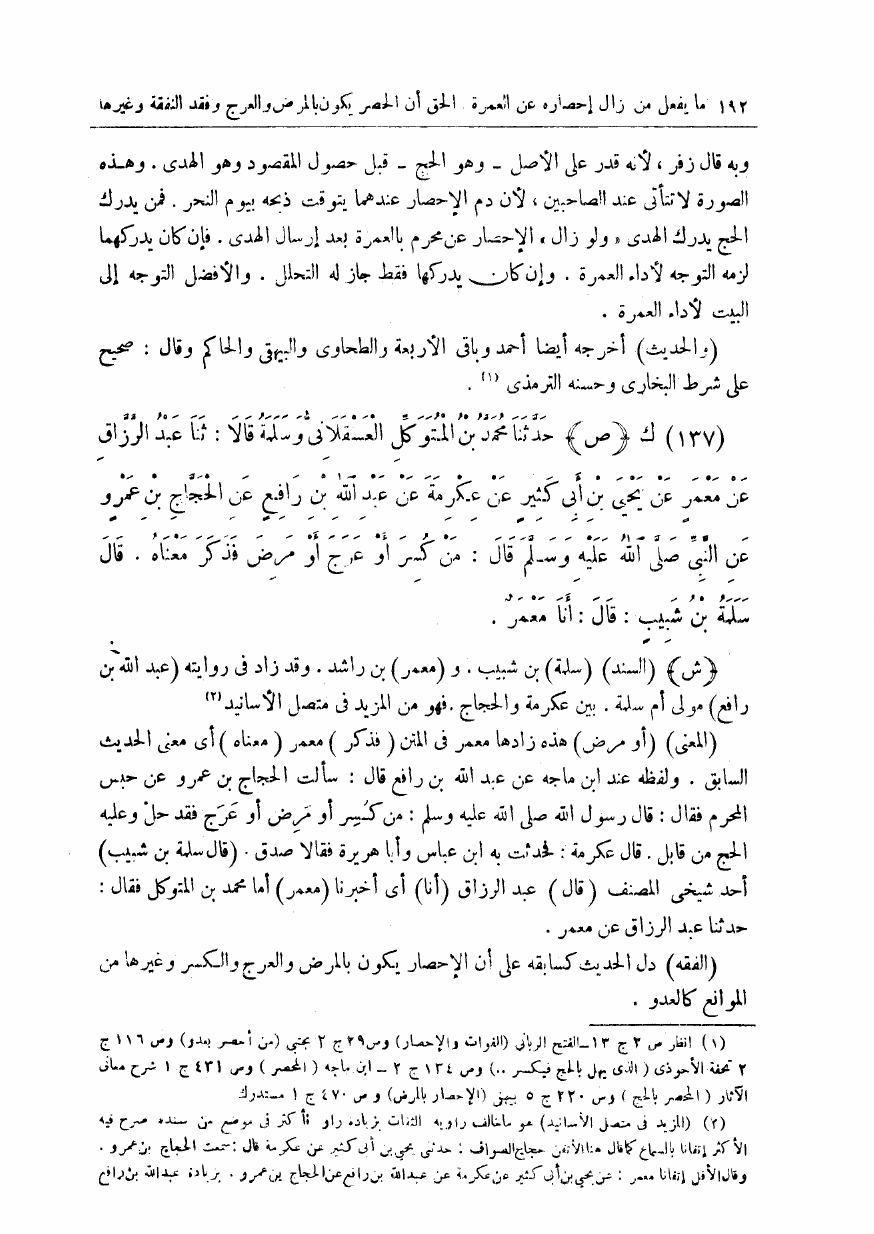 ١٩٢ ما يفعل من زال إحصاره عن العمرة . الحق أن الحصر يكون بالمرض والعرج وفقد النفقة وغيرها
وبه قال زفر ، لأنه قدر على الأصل - وهو الحج - قبل حصول المقصود وهو الهدى . وهذه
الصورة لا تتأتى عند الصاحبين ، لأن دم الإحصار عندهما يتوقت ذبحه بيوم النحر . فمن يدرك
الحج يدرك الهدى « ولو زال » الإحصار عن محرم بالعمرة بعد إرسال الهدى . فإن كان يدركهما
لزمه التوجه لأداء العمرة . وإن كان يدركها فقط جاز له التحلل . والأفضل التوجه إلى
البيت لأداء العمرة .
(والحديث) أخرجه أيضا أحمد وباقى الأربعة والطحاوى والبيهقى والحاكم وقال : صحيح
على شرط البخارى وحسنه الترمذى (١) .
(١٣٧) ك ﴿ص﴾ حَدَّثَنَا مُحَمَّدُ بْنُ الْمُتَوَكِّلِ الْعَسْقَلَانِى وَسَلَمَةُ قَالَا : ثَنَا عَبْدُ الرَّزَّاقِ
عَنْ مَعْمَرٍ عَنْ يَحْيَى بْنِ أَبِى كَثِيرٍ عَنْ عِكْرِمَةَ عَنْ عَبْدِ اللهِ بْنِ رَافِعٍ عَنِ الْحَجَّاجِ بْنِ عَمْرٍو
عَنِ النَّبِىِّ صَلَّى اللهُ عَلَيْهِ وَسَلَّمَ قَالَ : مَنْ كُسِرَ أَوْ عَرَجَ أَوْ مَرِضَ فَذَكَرَ مَعْنَاهُ . قَالَ
سَلَمَةُ بْنُ شَبِيبٍ : قَالَ : أَنَا مَعْمَرٌ .
﴿ش﴾ (السند) (سلمة) بن شبيب . و (معمر) بن راشد . وقد زاد فى روايته (عبد الله بن
رافع) مولى أم سلمة . بين عكرمة والحجاج . فهو من المزيد فى متصل الأسانيد (٢)
(المعنى) (أو مرض) هذه زادها معمر فى المتن ( فذكر ) معمر ( معناه ) أى معنى الحديث
السابق . ولفظه عند ابن ماجه عن عبد الله بن رافع قال : سألت الحجاج بن عمرو عن حبس
المحرم فقال : قال رسول الله صلى الله عليه وسلم : من كُسِر أو مَرِض أو عَرَج فقد حلّ وعليه
الحج من قابل . قال عكرمة : فحدثت به ابن عباس وأبا هريرة فقالا صدق . (قال سلمة بن شبيب)
أحد شيخى المصنف ( قال ) عبد الرزاق (أنا) أى أخبرنا (معمر) أما محمد بن المتوكل فقال :
حدثنا عبد الرزاق عن معمر .
(الفقه) دل الحديث كسابقه على أن الإحصار يكون بالمرض والعرج والكسر وغيرها من
الموانع كالعدو .
(١) انظر ص ٢ ج ١٣ - الفتح الربانى (الفوات والإحصار) وص ٢٩ ج ٢ مجتبى (من أحصر بعدو) وص ١١٦ ج
٢ تحفة الأحوذى ( الذى يهل بالحج فيكسر ..) وص ١٣٤ ج ٢ - ابن ماجه ( المحصر ) وص ٤٣١ ج ١ شرح معانى
الآثار ( المحصر بالحج ) وص ٢٢٠ ج ٥ بيهقى (الإحصار بالمرض) و ص ٤٧٠ ج ١ مستدرك
(٢) (المزيد فى متصل الأسانيد) هو ما خالف راويه الثقات بزيادة راو فأكثر فى موضع من سنده صرح فيه
الأكثر إتقانا بالسماع كما قال هنا الأتقن حجاج الصواف : حدثنى يحيى بن أبى كثير عن عكرمة قال : سمعت الحجاج بن عمرو .
وقال الأقل إتقانا معمر : عن يحيى بن أبى كثير عن عكرمة عن عبد الله بن رافع عن الحجاج بن عمرو . بزيادة عبد الله بن رافع